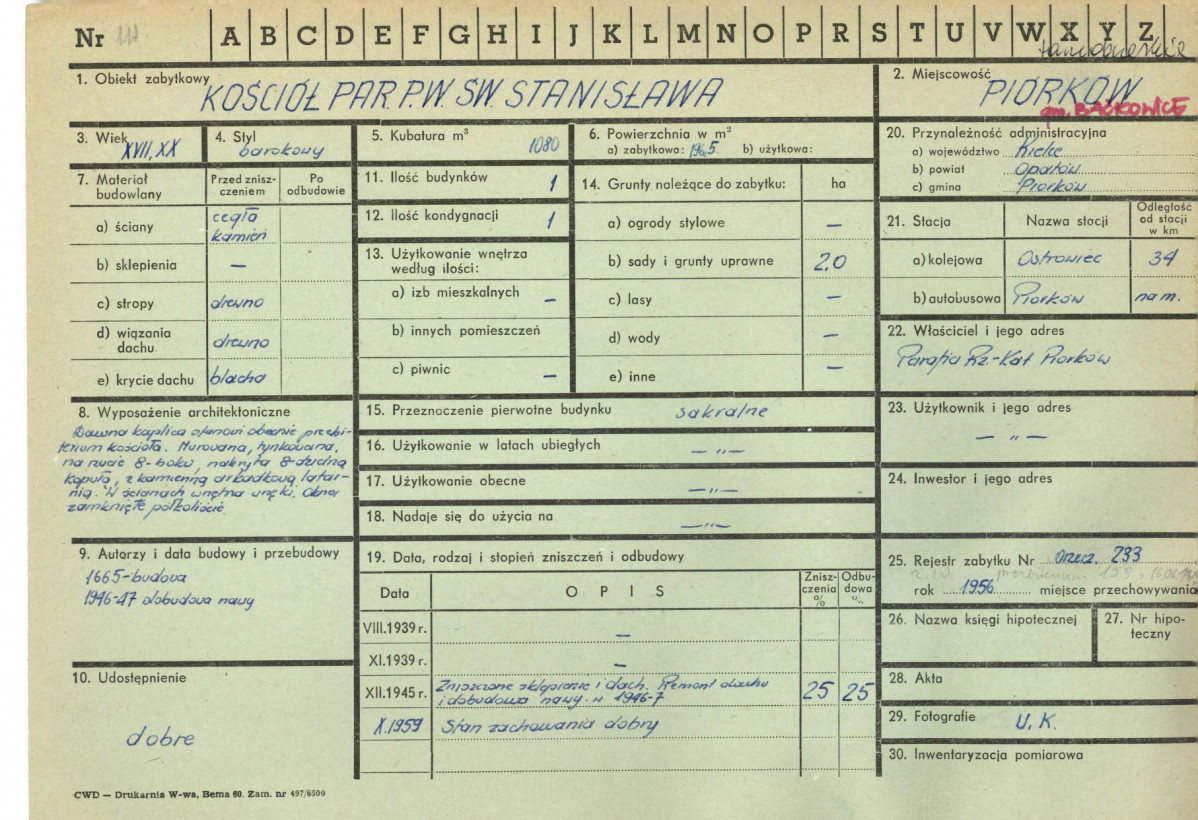 Nr A B C D E F G H I J K L M N O P R S T U V W X Y Z
1. Obiekt zabytkowy
KOŚCIÓŁ PAR. P.W. ŚW. STANISŁAWA
2. Miejscowość
PIÓRKÓW
gm. BAĆKOWICE
3. Wiek
XVII, XX
4. Styl
barokowy
5. Kubatura m³
1080
6. Powierzchnia w m²
a) zabytkowa: 196,5 b) użytkowa:
7. Materiał budowlany
Przed zniszczeniem
Po odbudowie
a) ściany
cegła
kamień
b) sklepienia —
c) stropy drewno
d) wiązania dachu drewno
e) krycie dachu blacha
8. Wyposażenie architektoniczne
Dawna kaplica stanowi obecnie prezbi-
terium kościoła. Murowana, tynkowana,
na rzucie 8-boku, nakryta 8-dzielną
kopułą, z kamienną arkadkową latar-
nią. W ścianach wnętrza wnęki. Okna
zamknięte półkoliście.
9. Autorzy i data budowy i przebudowy
1665-budowa
1946-47 dobudowa nawy
10. Udostępnienie
dobre
11. Ilość budynków 1
12. Ilość kondygnacji 1
13. Użytkowanie wnętrza
według ilości:
a) izb mieszkalnych —
b) innych pomieszczeń
c) piwnic —
14. Grunty należące do zabytku: ha
a) ogrody stylowe —
b) sady i grunty uprawne 2.0
c) lasy —
d) wody —
e) inne —
15. Przeznaczenie pierwotne budynku sakralne
16. Użytkowanie w latach ubiegłych — „ —
17. Użytkowanie obecne — „ —
18. Nadaje się do użycia na — „ —
19. Data, rodzaj i stopień zniszczeń i odbudowy
Data OPIS Zniszczenia % Odbudowa %
VIII.1939 r. —
XI.1939 r. —
XII.1945 r. Zniszczone sklepienie i dach. Remont dachu
i dobudowa nawy w 1946-7 25 25
X.1959 Stan zachowania dobry
20. Przynależność administracyjna
a) województwo Kielce
b) powiat Opatów
c) gmina Piorków
21. Stacja Nazwa stacji Odległość od stacji w km
a) kolejowa Ostrowiec 34
b) autobusowa Piorków na m.
22. Właściciel i jego adres
Parafia Rz.-Kat Piorków
23. Użytkownik i jego adres
— „ —
24. Inwestor i jego adres
25. Rejestr zabytku Nr orzecz. 233
rok 1956 miejsce przechowywania
26. Nazwa księgi hipotecznej
27. Nr hipoteczny
28. Akta
29. Fotografie U. K.
30. Inwentaryzacja pomiarowa
CWD — Drukarnia W-wa, Bema 60. Zam. nr 497/6500